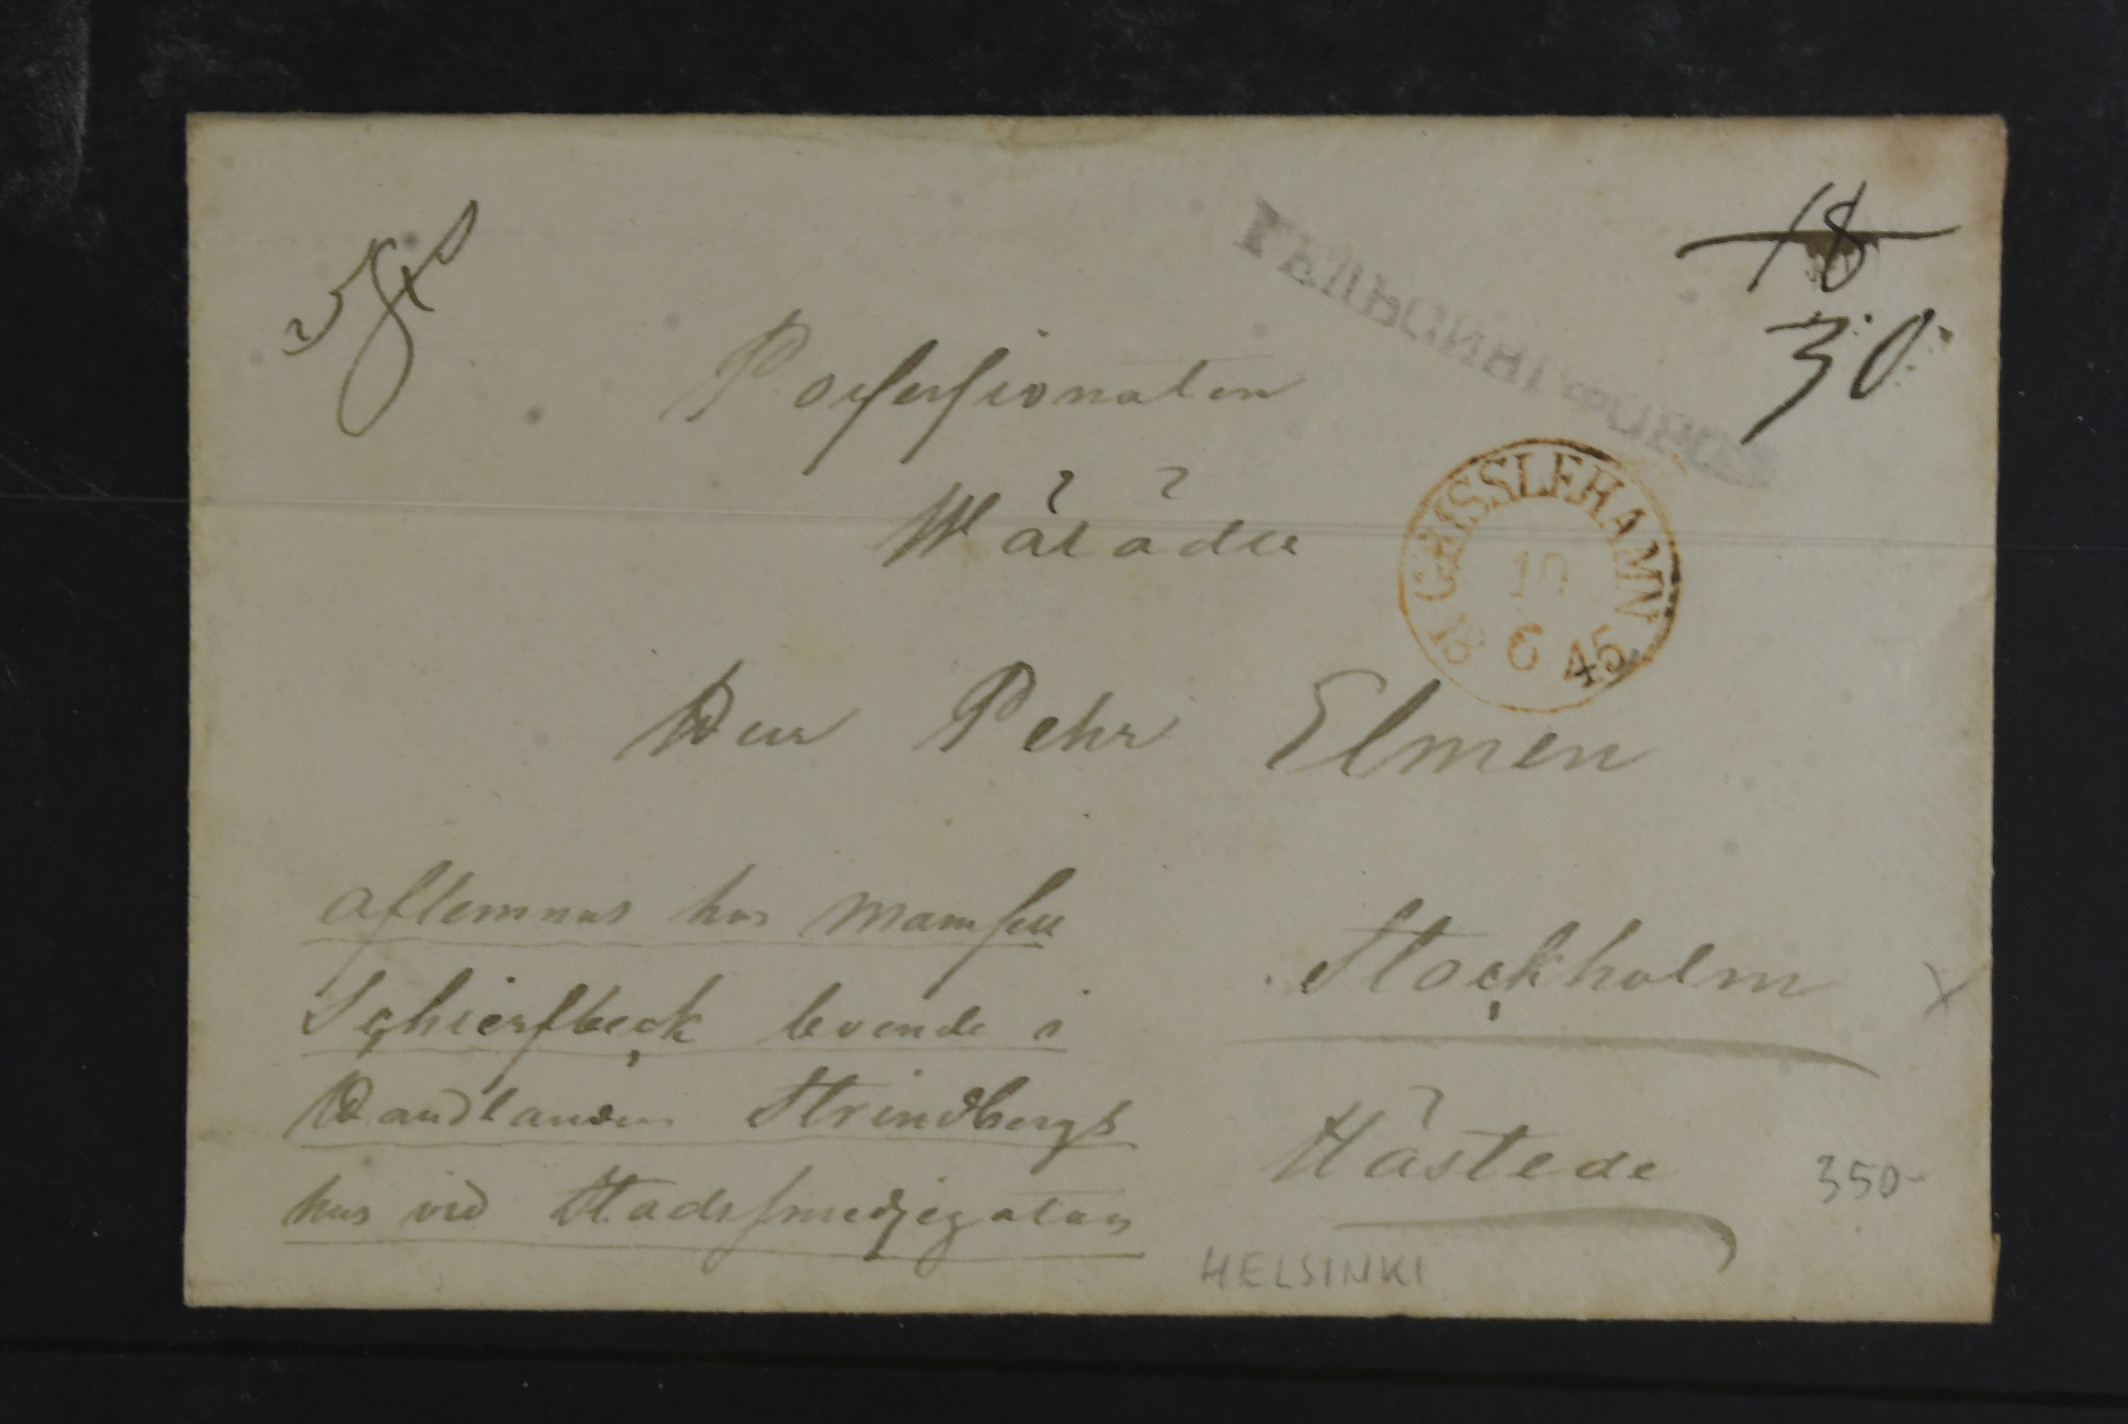 18
30
ГЕЛЬСИНГФОРСЪ
Possessionaten
Wälädle
Herr Pehr Elmen
GRISSLEHAMN
10
6 45
aflemnas hos Mamsell
Schierfbeck boende i
Handlanden Strindbergs
hus vid Stadssmedjegatan
Stockholm
Håstede
350-
HELSINKI